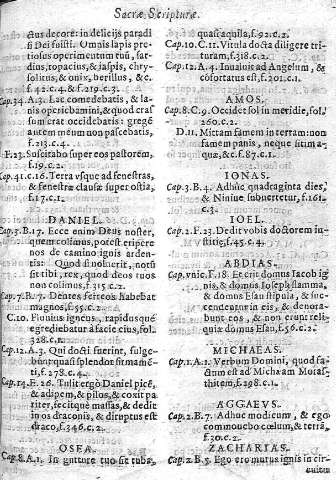 Sacræ Scripturæ.
ctus decore: in delicijs paradi
si Dei fuisti. Omnis lapis pre-
tiosus operimentum tuũ, sar-
dius, topacius, & jaspis, chry-
solitus, & onix, berillus, & c.
f. 42. c. 4. & f. 219. c. 3.
Cap. 34. A. 3. Lac comedebatis, & la-
nis operiebamini, & quod craf
sum erat occidebatis: gregẽ
autem meum non pascebatis,
f. 213. c. 4.
F. 23. Suscitabo super eos pastorem,
f. 19. c. 2.
Cap. 41. C. 16. Terra vsque ad fenestras,
& fenestræ clausæ super ostia,
f. 17. c. 1.
DANIEL.
Cap. 3. B. 17. Ecce enim Deus noster,
quem colimus, potest eripere
nos de camino ignis arden-
tis. Quod si noluerit, notũ
sit tibi, rex, quod deos tuos
non colimus, f. 315. c. 2.
Cap. 7. B. 7. Dentes ferreos habebat
magnos, f. 55. c. 2.
C. 10. Fluuius igneus, rapidusque
egrediebatur à facie eius, fol.
328. c. 1.
Cap. 12. A. 3. Qui docti fuerint, fulge-
bunt quasi splendor firmamẽ
ti, f. 278. c. 4.
Cap. 14. E. 26. Tulit ergò Daniel picẽ,
& adipem, & pilos, & coxit pa
riter, fecitque massas, & dedit
in os draconis, & diruptus est
draco, f. 346. c. 2.
OSEA.
Cap. 8. A. 1. In gutture tuo sit tuba,
quasi aquila, f. 9. c. 2.
Cap. 10. C. 11. Vitula docta diligere tri-
turam, f. 318. c. 2.
Cap. 12. A. 4. Inualuit ad Angelum, &
cõfortatus est, f. 201. c. 1.
AMOS.
Cap. 8. C. 9. Occidet sol in meridie, fol.
260. c. 2.
D. 11. Mittam famem in terram: non
famem panis, neque sitim a-
quæ, & c. f. 87. c. 1.
IONAS.
Cap. 3. B. 4. Adhuc quadraginta dies,
& Niniue subuertetur, f. 161.
c. 3.
IOEL.
Cap. 2. F. 23. Dedit vobis doctorem iu-
stitiæ, f. 45. c. 4.
ABDIAS.
Cap. vnic. F. 18. Et erit domus Iacob ig
nis, & domus Ioseph flamma,
& domus Esau stipula, & suc-
cendentur in eis, & deuora-
bunt eos, & non erunt reli-
quiæ domus Esau, f. 56. c. 2.
MICHAEAS.
Cap. 1. A. 1. Verbum Domini, quod fa-
ctum est ad Michæam Moras-
thitem, f. 298. c. 1.
AGGAEVS.
Cap. 2. B. 7. Adhuc modicum, & ego
commouebo cœlum, & terrã,
f. 30. c. 2.
ZACHARIAS.
Cap. 2. B. 5. Ego ero murus ignis in cir-
cuitu